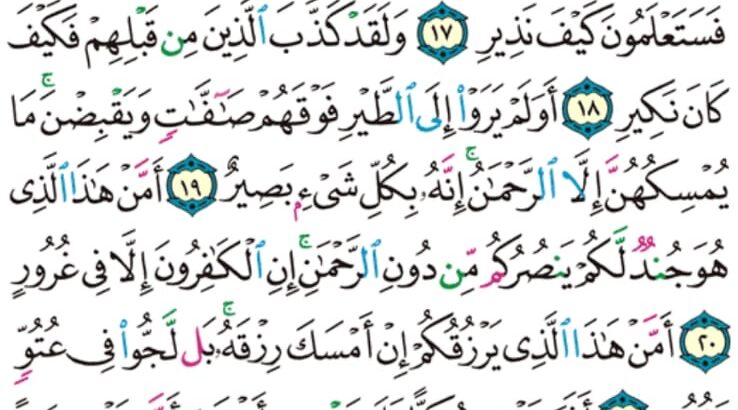 فَسَتَعْلَمُونَ كَيْفَ نَذِيرِ ١٧ وَلَقَدْ كَذَّبَ ٱلَّذِينَ مِن قَبْلِهِمْ فَكَيْفَ
كَانَ نَكِيرِ ١٨ أَوَلَمْ يَرَوْا۟ إِلَى ٱلطَّيْرِ فَوْقَهُمْ صَـٰٓفَّـٰتٍ وَيَقْبِضْنَ ۚ مَا
يُمْسِكُهُنَّ إِلَّا ٱلرَّحْمَـٰنُ ۚ إِنَّهُۥ بِكُلِّ شَىْءٍۭ بَصِيرٌ ١٩ أَمَّنْ هَـٰذَا ٱلَّذِى
هُوَ جُندٌ لَّكُمْ يَنصُرُكُم مِّن دُونِ ٱلرَّحْمَـٰنِ ۚ إِنِ ٱلْكَـٰفِرُونَ إِلَّا فِى غُرُورٍ
٢٠ أَمَّنْ هَـٰذَا ٱلَّذِى يَرْزُقُكُمْ إِنْ أَمْسَكَ رِزْقَهُۥ ۚ بَل لَّجُّوا۟ فِى عُتُوٍّ